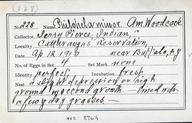 (228)
No. 228. Philohela minor. Am. Woodcock
Collector Jerry Pierce, Indian.
Cattaraugus Reservation,
Apr. 18, 1910 near Buffalo, N.Y.
No. of Eggs in Set 4 Set mark none
Identity perfect Incubation fresh
a slight depression on high
ground in second growth. Lined with
a few dry grasses.